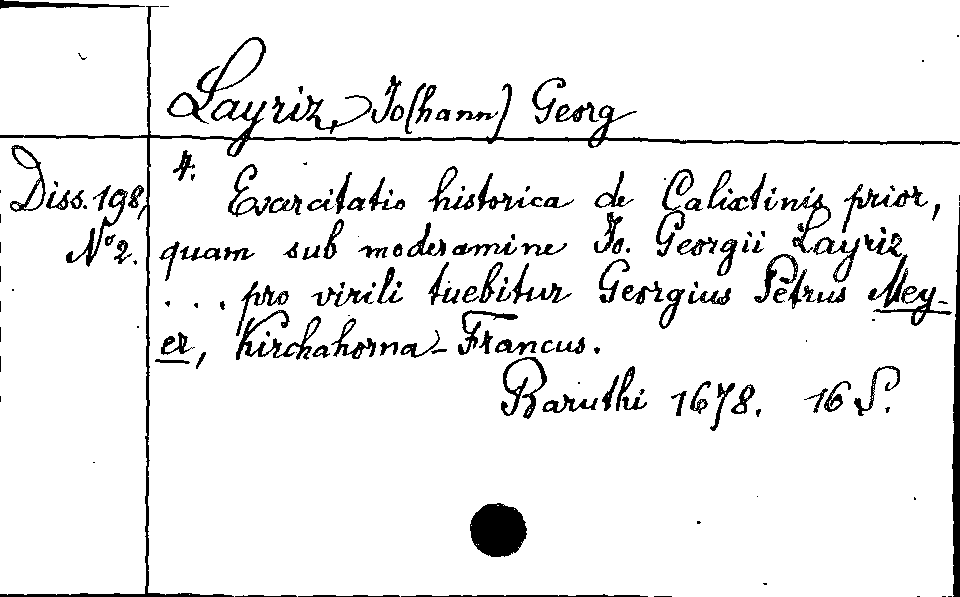 Layriz, Jo(hann) Georg
4.
Diss. 198,
No 2.
Exercitatio historica de Calixtinis prior,
quam sub moderamine Jo. Georgii Layriz
... pro virili tuebitur Georgius Petrus Mey-
er, Kirchahorna-Francus.
Baruthi 1678. 16 S.